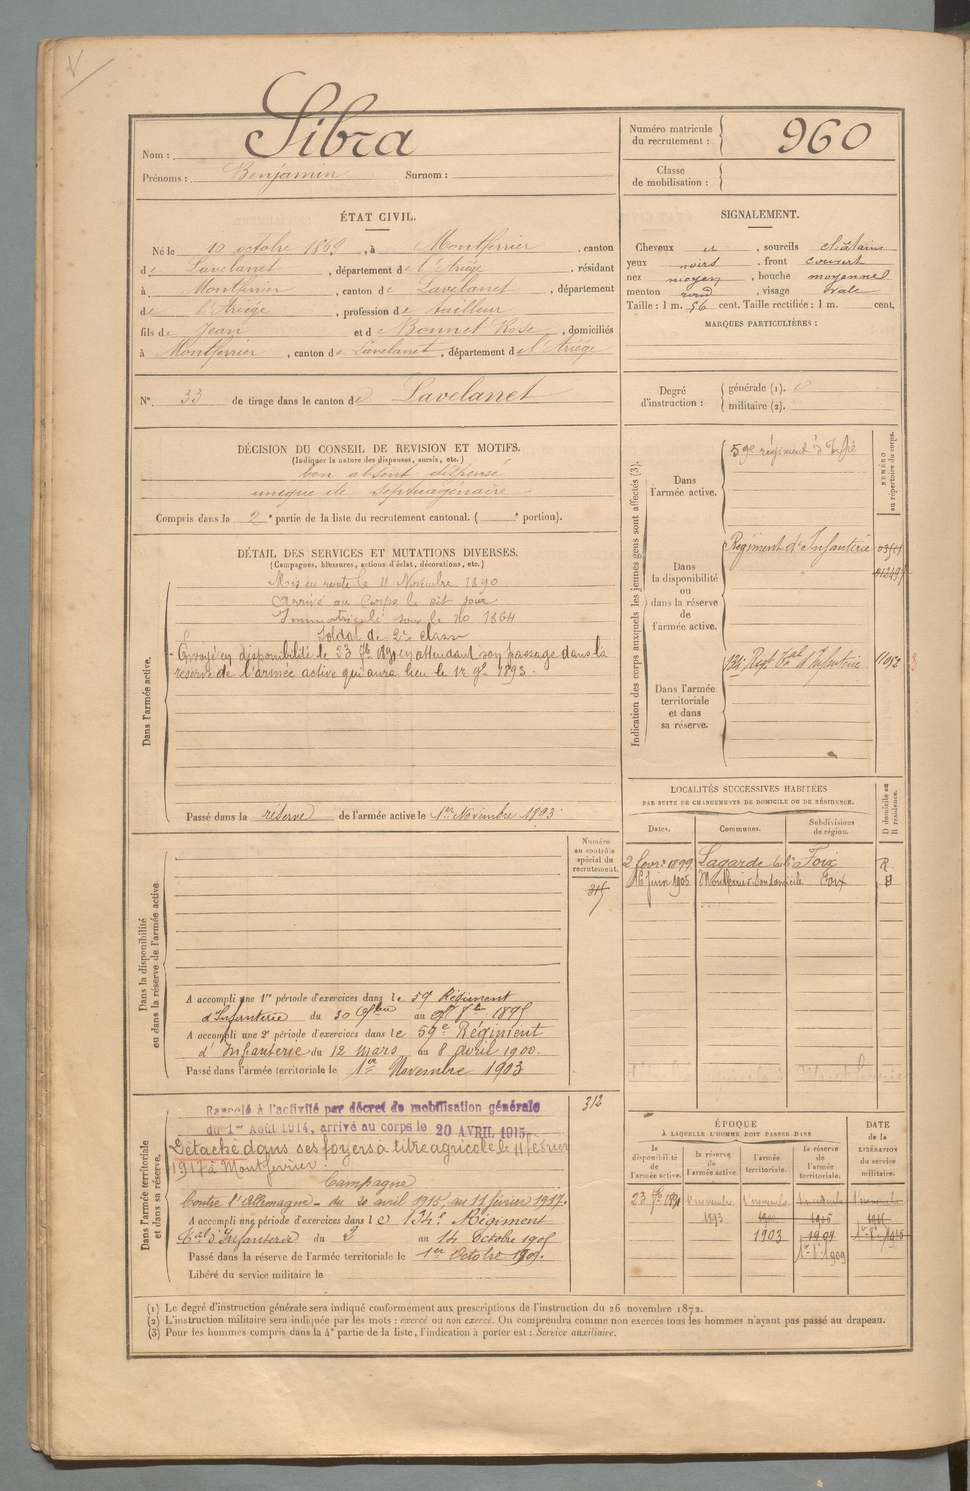 Nom : Sibra
Prénoms : Benjamin Surnom :
Numéro matricule du recrutement : 960
Classe de mobilisation :
ÉTAT CIVIL.
Né le 10 octobre 1869, à Montferrier, canton
de Lavelanet, département de l'Ariège, résidant
à Montferrier, canton de Lavelanet, département
de l'Ariège, profession de tailleur
fils de Jean et de Bonnet Rose, domiciliés
à Montferrier, canton de Lavelanet, département de l'Ariège
N° 33 de tirage dans le canton de Lavelanet
SIGNALEMENT.
Cheveux et, sourcils châtains
yeux noirs, front couvert
nez moyen, bouche moyenne
menton rond, visage ovale
Taille : 1 m. 56 cent. Taille rectifiée : 1 m. cent.
MARQUES PARTICULIÈRES :
Degré d'instruction : générale (1). 0
militaire (2).
DÉCISION DU CONSEIL DE REVISION ET MOTIFS.
(Indiquer la nature des dispenses, sursis, etc.)
bon absent dispensé
unique de septuagénaire
Compris dans la 2e partie de la liste du recrutement cantonal. ( e portion).
DÉTAIL DES SERVICES ET MUTATIONS DIVERSES.
(Campagnes, blessures, actions d'éclat, décorations, etc.)
Dans l'armée active.
Mis en route le 11 Novembre 1890
arrivé au Corps le dit jour
Immatriculé sous le no 1864
Soldat de 2e classe
Envoyé en disponibilité le 23 7bre 1891 en attendant son passage dans la
réserve de l'armée active qui aura lieu le 1er 9bre 1893
Passé dans la réserve de l'armée active le 1er Novembre 1893
Indication des corps auxquels les jeunes gens sont affectés (3).
NUMÉRO au répertoire du corps.
Dans l'armée active.
59e régiment d'Infrie
Dans la disponibilité ou dans la réserve de l'armée active.
Régiment d'Infanterie
Dans l'armée territoriale et dans sa réserve.
134e Regt Tal d'Infanterie
LOCALITÉS SUCCESSIVES HABITÉES
PAR SUITE DE CHANGEMENTS DE DOMICILE OU DE RÉSIDENCE.
Dates. Communes. Subdivisions de région. D domicile ou R résidence.
2 fevr. 1899 Lagarde Foix R
16 Juin 1905 Montferrier son domicile Foix D
Dans la disponibilité ou dans la réserve de l'armée active.
Numéro au contrôle spécial du recrutement.
A accompli une 1re période d'exercices dans le 59e Régiment
d'Infanterie du 30 au 1895
A accompli une 2e période d'exercices dans le 59e Régiment
d'Infanterie du 12 mars au 8 avril 1900.
Passé dans l'armée territoriale le 1er Novembre 1903
Dans l'armée territoriale et dans sa réserve.
312
Rappelé à l'activité par décret de mobilisation générale
du 1er Août 1914, arrivé au corps le 20 AVRIL 1915
Détaché dans ses foyers à titre agricole le 11 février
1917 à Montferrier.
Campagne
Contre l'Allemagne - du 20 avril 1915, au 11 février 1917.
A accompli une période d'exercices dans le 134e Régiment
tal d'Infanterie du 2 au 14 octobre 1905
Passé dans la réserve de l'armée territoriale le 1er Octobre 1909.
Libéré du service militaire le
ÉPOQUE
À LAQUELLE L'HOMME DOIT PASSER DANS
DATE de la LIBÉRATION du service militaire.
la disponibilité de l'armée active. la réserve de l'armée active. l'armée territoriale. la réserve de l'armée territoriale.
23 7bre 1891 1er novembre 1er novembre 1er novembre 1er novembre
1893
1903 1909
1er 8bre 1909
(1) Le degré d'instruction générale sera indiqué conformément aux prescriptions de l'instruction du 26 novembre 1872.
(2) L'instruction militaire sera indiquée par les mots : exercé ou non exercé. On comprendra comme non exercés tous les hommes n'ayant pas passé au drapeau.
(3) Pour les hommes compris dans la 4e partie de la liste, l'indication à porter est : Service auxiliaire.